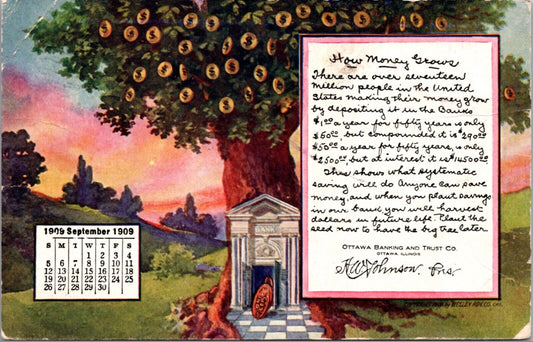 How Money Grows
There are over seventeen
Million people in the United
States making their money grow
by depositing it in the Banks
$1.00 a year for fifty years is only
$50.00, but compounded it is $290.00
$50.00 a year for fifty years, is only
$2500.00, but at interest it is $14500.00
This shows what systematic
saving will do Anyone can save
money, and when you plant savings
in our bank you will harvest
dollars in future life. Plant the
seed now to have the big tree later.
OTTAWA BANKING AND TRUST CO.
OTTAWA ILLINOIS
Pres.
1909 September 1909
S M T W T F S
1 2 3 4
5 6 7 8 9 10 11
12 13 14 15 16 17 18
19 20 21 22 23 24 25
26 27 28 29 30
BANK
WESLEY ADV. CO. CHI.